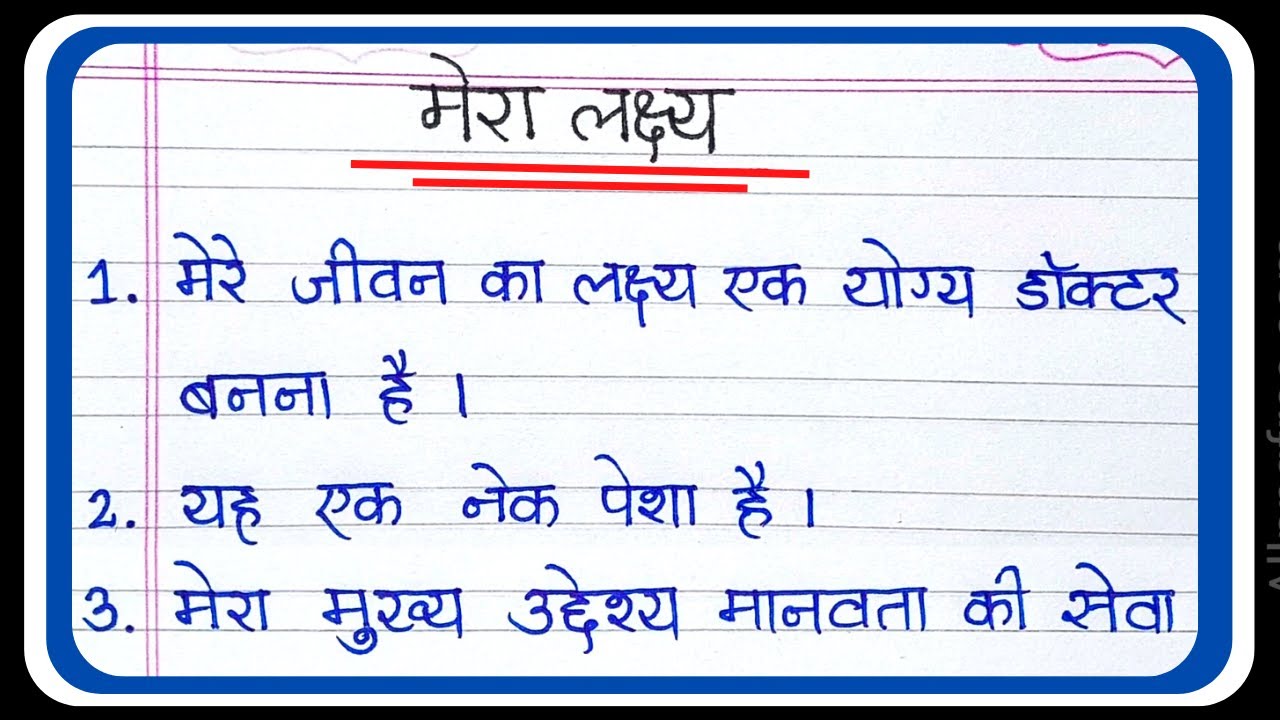 मेरा लक्ष्य
1. मेरे जीवन का लक्ष्य एक योग्य डॉक्टर
बनना है ।
2. यह एक नेक पेशा है ।
3. मेरा मुख्य उद्देश्य मानवता की सेवा